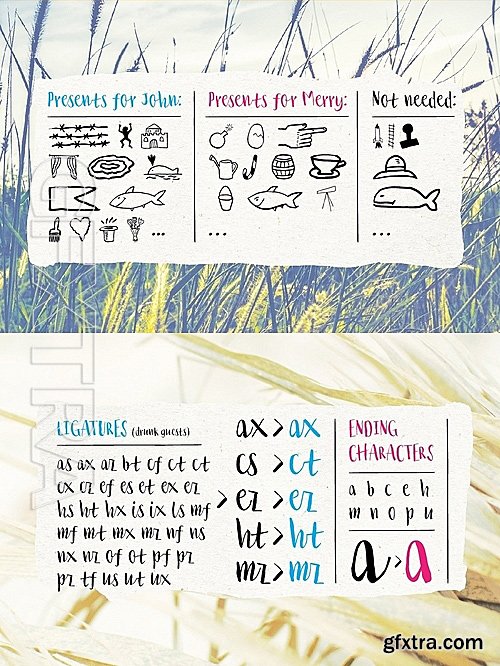 Presents for John:
Presents for Merry:
Not needed:
...
...
...
LIGATURES (drunk guests)
as ax ar bt cf ct ct
cx cr ef es et ex er
hs ht hx is ix ls mf
mf mt mx mr nf ns
nx nr of ot pf pr
pr tf us ut ux
>
ax > ax
cs > ct
er > er
ht > ht
mr > mr
ENDING
CHARACTERS
a b c e h
m n o p u
a > a
gfxtra.com